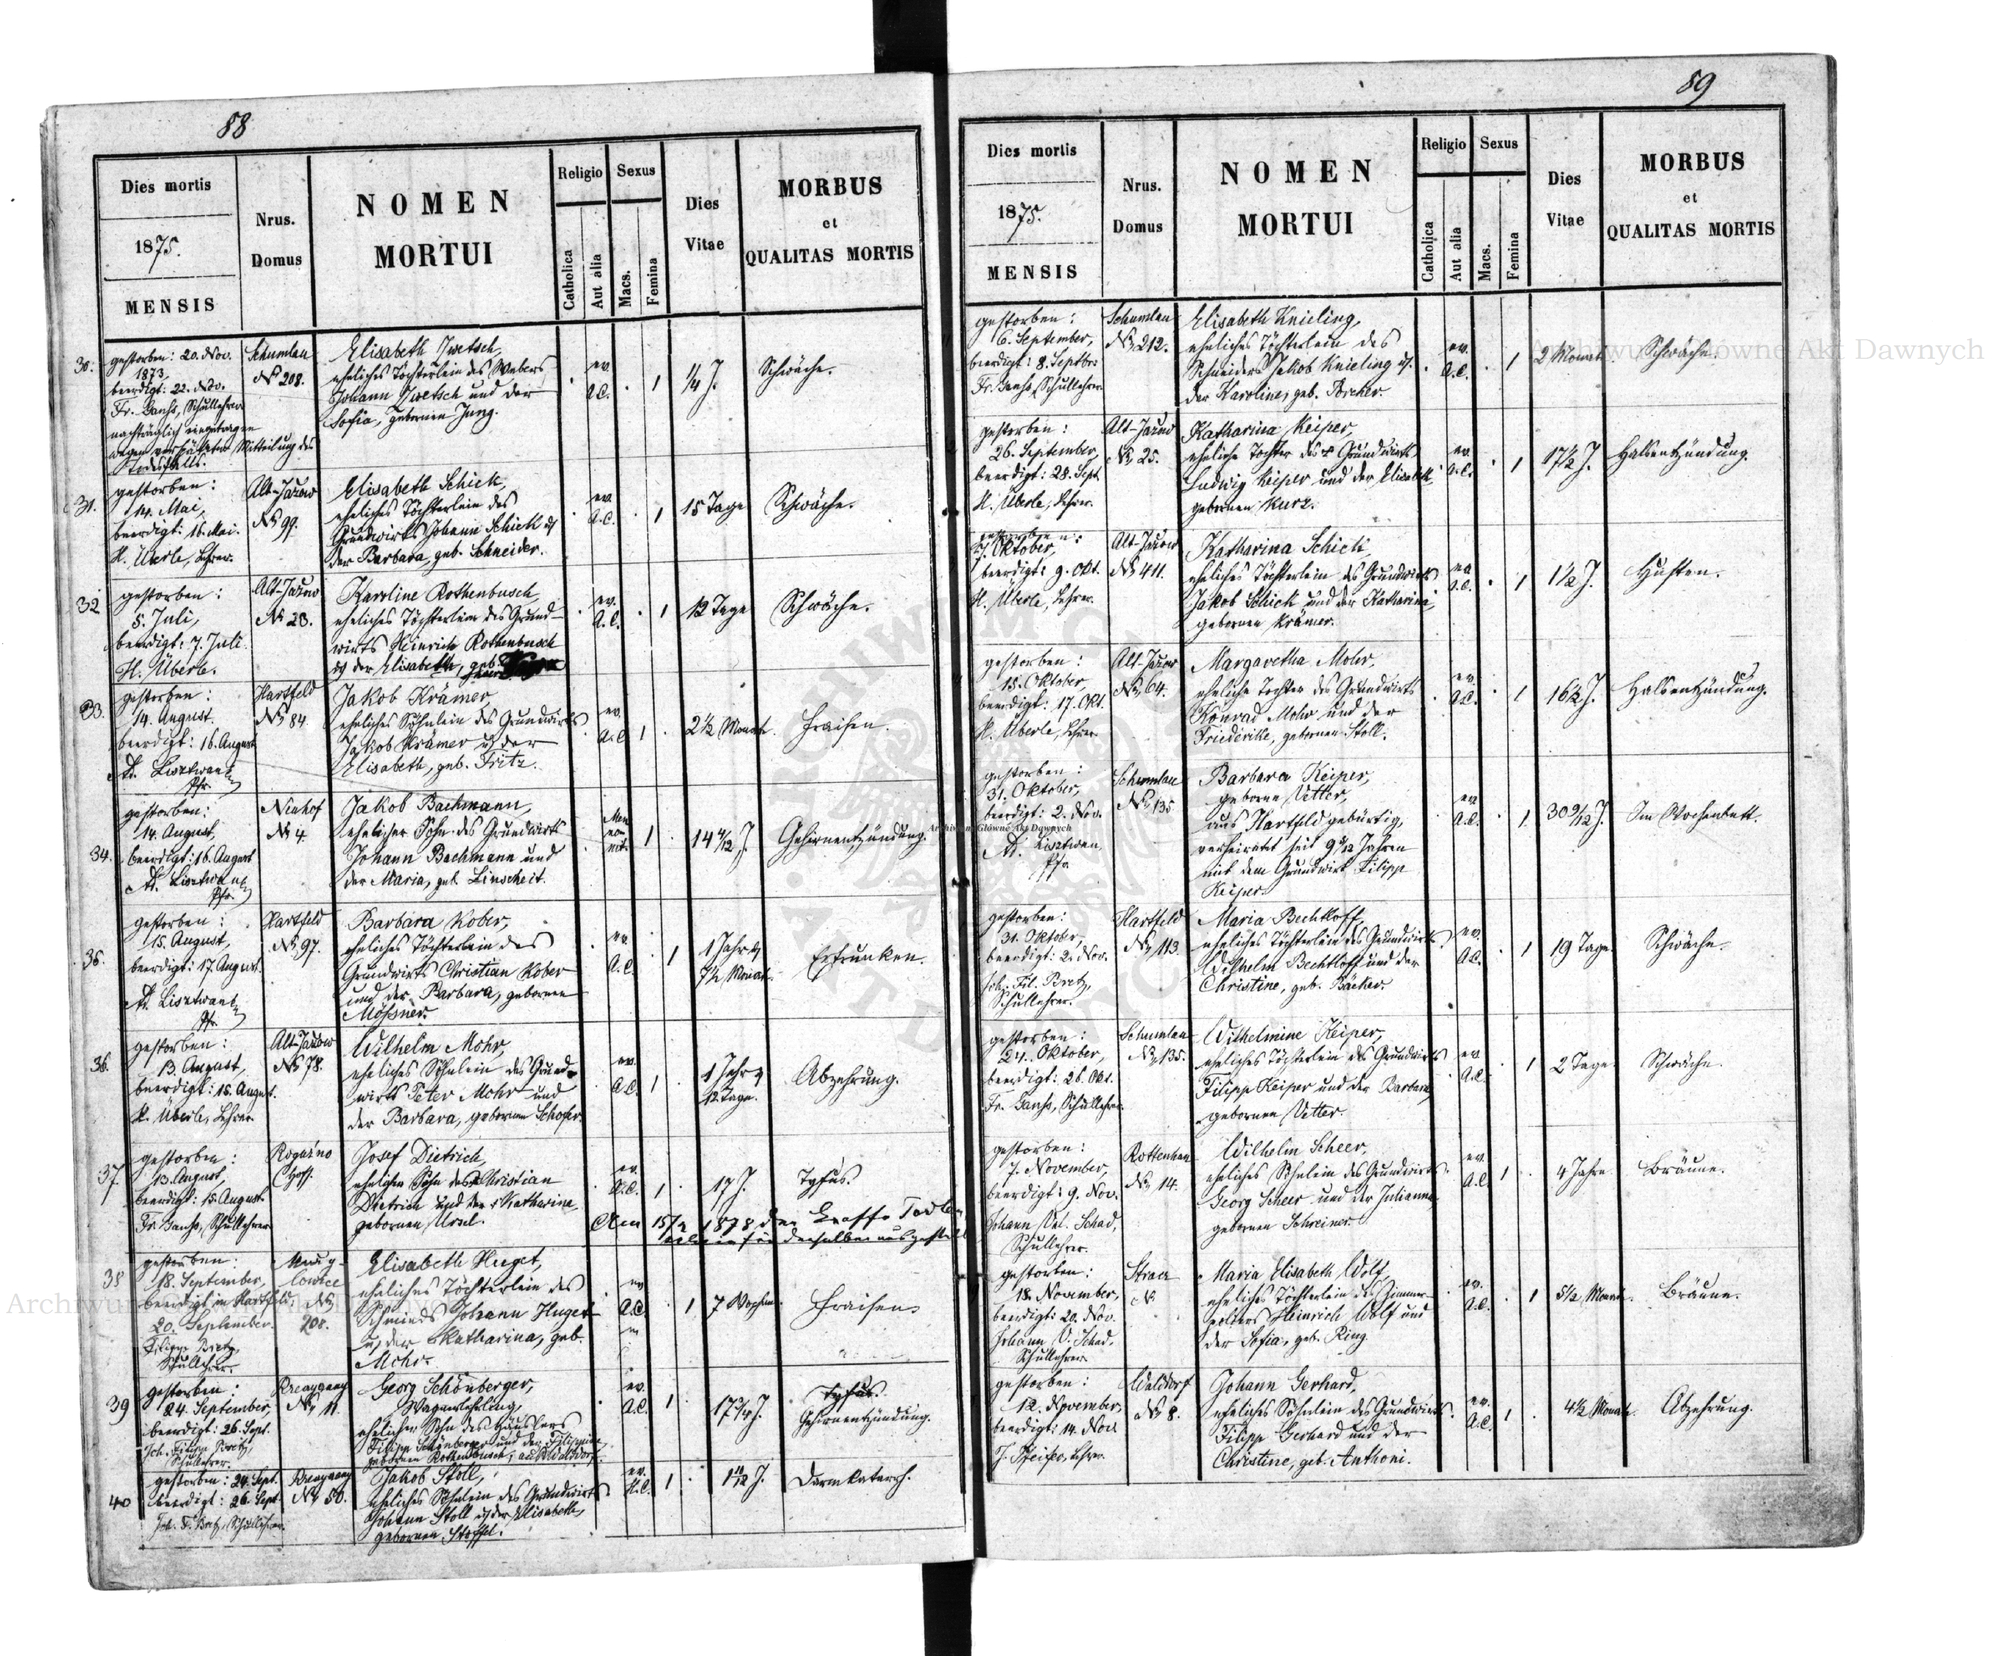 58
Dies mortis
1875.
MENSIS
Nrus.
Domus
NOMEN
MORTUI
Religio
Catholica
Aut alia
Sexus
Macs.
Femina
Dies
Vitae
MORBUS
et
QUALITAS MORTIS
30.
gestorben: 20. Nov.
1873,
beerdigt: 22. Nov.
Fr. Ganß, Schullehrer
nachträglich eingetragen
wegen verspäteter Mitteilung des
Todesfalls.
Schumlau
No 208.
Elisabeth Zwetsch,
eheliches Töchterlein des Webers
Johann Zwetsch und der
Sofia, gebornen Jung.
ev.
A.C.
1
1/4 J.
Schwäche.
31.
gestorben:
14. Mai,
beerdigt: 16. Mai.
H. Überle, Lehrer.
Alt-Jazow
No 99.
Elisabeth Schick,
eheliches Töchterlein des
Grundwirts Johann Schick u.
der Barbara, geb. Schneider.
ev.
A.C.
1
15 Tage
Schwäche.
32
gestorben:
5. Juli,
beerdigt: 7. Juli
H. Überle.
Alt-Jazow
No 23.
Karoline Rothenbusch,
eheliches Töchterlein des Grund-
wirts Heinrich Rothenbusch
u. der Elisabeth, geb.
ev.
A.C.
1
12 Tage
Schwäche.
33.
gestorben:
14. August.
beerdigt: 16. August
Ad. Lisztwan
Pfr.
Hartfeld
No 84.
Jakob Krämer,
eheliches Söhnlein des Grundwirts
Jakob Krämer u. der
Elisabeth, geb. Fritz.
ev.
A.C.
1
2 1/2 Monat
Fraisen.
34.
gestorben:
14. August,
beerdigt: 16. August
Ad. Lisztwan
Pfr.
Neuhof
No 4.
Jakob Bachmann,
ehelicher Sohn des Grundwirts
Johann Bachmann und
der Maria, geb. Linscheit.
Men
no-
nit.
1
14 4/12 J.
Gehirnentzündung.
35.
gestorben:
15. August,
beerdigt: 17. August.
Ad. Lisztwan
Pfr.
Hartfeld
No 97.
Barbara Kober,
eheliches Töchterlein des
Grundwirts Christian Kober
und der Barbara, gebornen
Mößner.
ev.
A.C.
1
1 Jahr u.
7 1/2 Monat.
Ertrunken.
36.
gestorben:
13. August,
beerdigt: 15. August.
H. Überle, Lehrer.
Alt-Jazow
No 78.
Wilhelm Mohr,
eheliches Söhnlein des Grund-
wirts Peter Mohr und
der Barbara, gebornen Schofer.
ev.
A.C.
1
1 Jahr u.
12 Tage.
Abzehrung.
37.
gestorben:
13. August,
beerdigt: 15. August.
Fr. Ganß, Schullehrer
Roguźno
Hof.
Josef Dietrich,
ehelicher Sohn des Christian
Dietrich und der Katharina
gebornen Ursel.
ev.
A.C.
1
17 J.
Tyfus.
Am 15/2 1878 den Todten-
schein für denselben ausgestellt
38
gestorben:
18. September,
beerdigt in Hartfeld:
20. September.
Filipp Bretz,
Schullehrer.
No
208.
Elisabeth Huget,
eheliches Töchterlein des
Schmieds Johann Huget
u. der Katharina, geb.
Mohr.
ev.
A.C.
1
7 Wochen.
Fraisen.
39
gestorben:
24. September,
beerdigt: 26. Sept.
Joh. Filipp Bretz,
Schullehrer.
No 11.
Georg Schönberger,
Wagnerlehrling,
ehelicher Sohn des Häuslers
Filipp Schönberger und der Filippine
gebornen Rothenbusch, aus Walddorf.
ev.
A.C.
1
17 3/4 J.
Tyfus.
Gehirnentzündung.
40
gestorben: 24. Sept.
beerdigt: 26. Sept.
Joh. F. Bretz, Schullehrer.
No 50.
Jakob Stoll,
eheliches Söhnlein des Grundwirts
Johann Stoll u. der Elisabeth,
gebornen Stoffel.
ev.
A.C.
1
1 11/12 J.
Darmkatarrh.
59
Dies mortis
1875.
MENSIS
Nrus.
Domus
NOMEN
MORTUI
Religio
Catholica
Aut alia
Sexus
Macs.
Femina
Dies
Vitae
MORBUS
et
QUALITAS MORTIS
gestorben:
6. September,
beerdigt: 8. Septbr.
Fr. Ganß, Schullehrer
Schumlau
No 212.
Elisabeth Knieling,
eheliches Töchterlein des
Schneiders Jakob Knieling u.
der Karoline, geb. Porcher.
ev.
A.C.
1
2 Monat.
Schwäche.
gestorben:
26. September,
beerdigt: 28. Sept.
H. Überle, Lehrer.
Alt-Jazow
No 25.
Katharina Keiper,
eheliche Tochter des Grundwirts
Ludwig Keiper und der Elisabeth
gebornen Kurz.
ev.
A.C.
1
17 1/2 J.
Halsentzündung.
gestorben:
7. Oktober,
beerdigt: 9. Okt.
H. Überle, Lehrer.
Alt-Jazow
No 411.
Katharina Schick,
eheliches Töchterlein des Grundwirts
Jakob Schick und der Katharina
gebornen Krämer.
ev.
A.C.
1
1 1/2 J.
Husten.
gestorben:
15. Oktober,
beerdigt: 17. Okt.
H. Überle, Lehrer
Alt-Jazow
No 64.
Margaretha Mohr,
eheliche Tochter des Grundwirts
Konrad Mohr und der
Friederike, gebornen Stoll.
ev.
A.C.
1
16 1/2 J.
Halsentzündung.
gestorben:
31. Oktober,
beerdigt: 2. Nov.
Ad. Lisztwan,
Pfr.
Schumlau
No 135
Barbara Keiper,
geborne Vetter,
aus Hartfeld gebürtig,
verheiratet seit 9 9/12 Jahren
mit dem Grundwirt Filipp
Keiper.
ev.
A.C.
1
30 9/12 J.
Im Wochenbett.
gestorben:
31. Oktober,
beerdigt: 2. Nov.
Joh. Fil. Bretz,
Schullehrer.
Hartfeld
No 113.
Maria Bechtloff,
eheliches Töchterlein des Grundwirts
Wilhelm Bechtloff und der
Christine, geb. Bäcker.
ev.
A.C.
1
19 Tage
Schwäche.
gestorben:
24. Oktober,
beerdigt: 26. Okt.
Fr. Ganß, Schullehrer.
Schumlau
No 135.
Wilhelmine Keiper,
eheliches Töchterlein des Grundwirts
Filipp Keiper und der Barbara,
gebornen Vetter
ev.
A.C.
1
2 Tage.
Schwäche.
gestorben:
7. November,
beerdigt: 9. Nov.
Johann Val. Schad,
Schullehrer.
Rottenhan
No 14.
Wilhelm Scheer,
eheliches Söhnlein des Grundwirts
Georg Scheer und der Julianna,
gebornen Schreiner
ev.
A.C.
1
4 Jahre
Bräune.
gestorben:
18. November,
beerdigt: 20. Nov.
Johann V. Schad,
Schullehrer
No
Maria Elisabeth Wolf,
eheliches Töchterlein des Zimmer-
Heinrich Wolf und
der Sofia, geb. Ring.
ev.
A.C.
1
5 1/2 Monat.
Bräune.
gestorben:
12. November,
beerdigt: 14. Nov.
J. Pfeifer, Lehrer.
Walddorf
No 8.
Johann Gerhard,
eheliches Söhnlein des Grundwirts
Filipp Gerhard und der
Christine, geb. Anthoni.
ev.
A.C.
1
4 1/2 Monate
Abzehrung.
Archiwum Główne Akt Dawnych